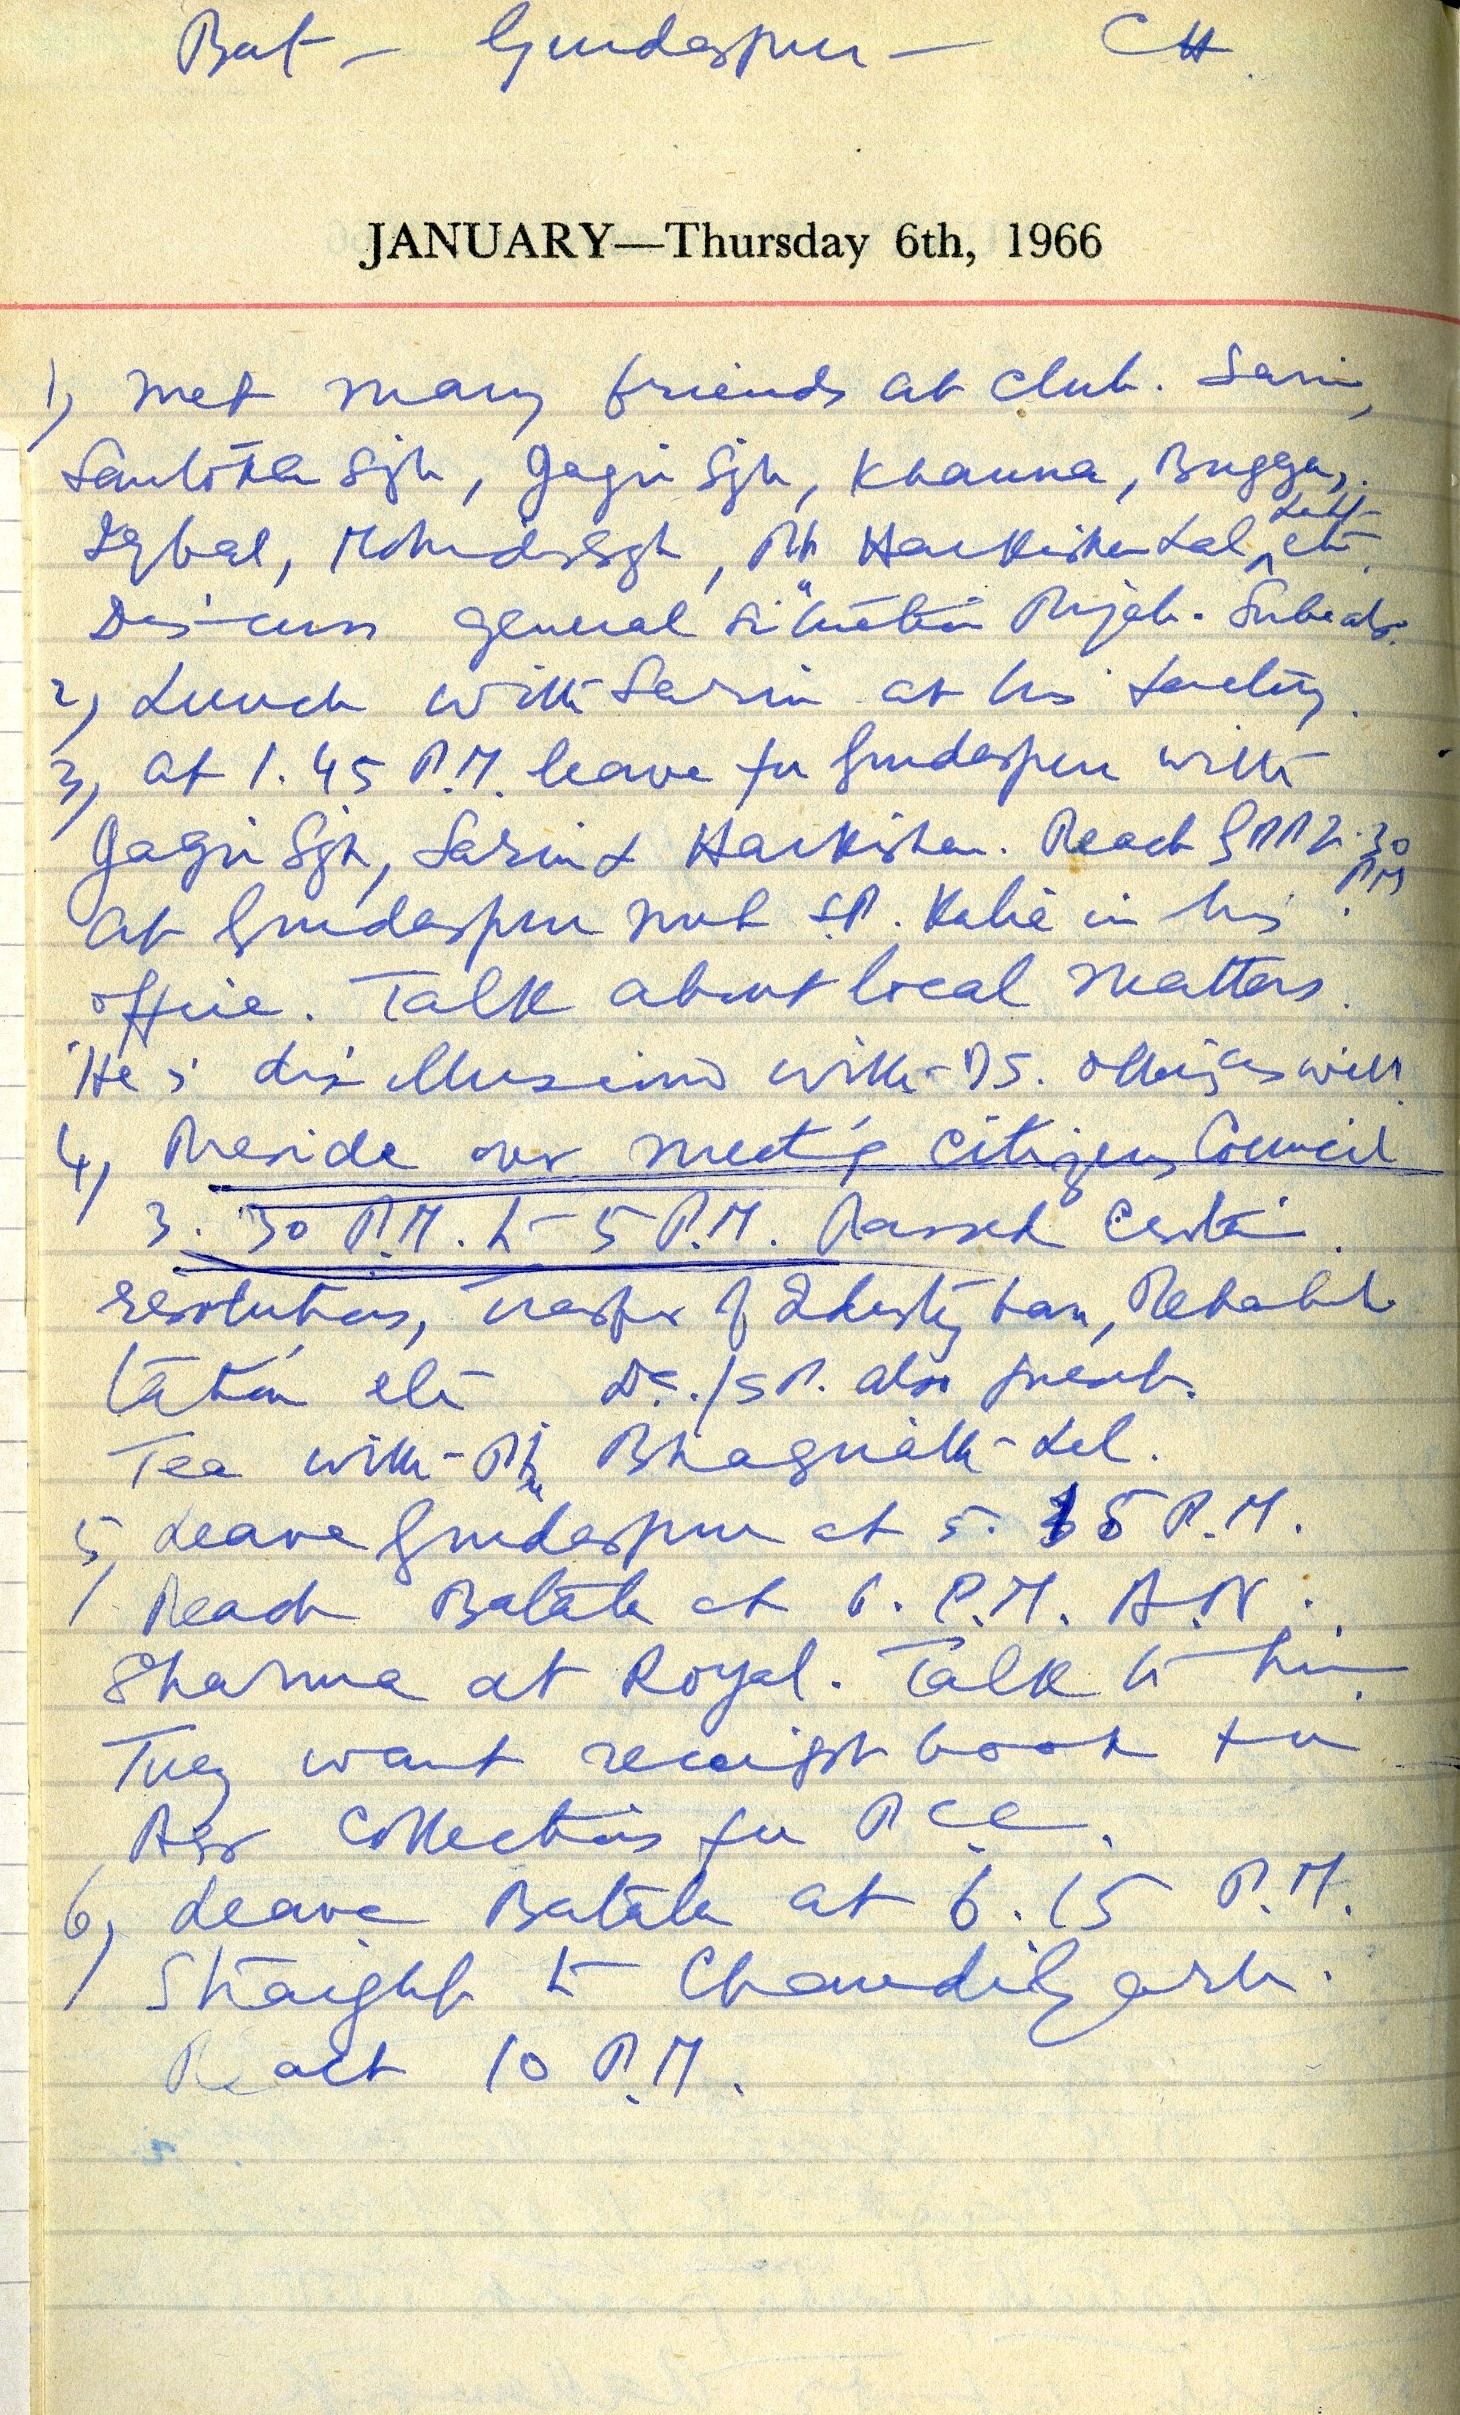 Bat — Gurdaspur — CH.
JANUARY—Thursday 6th, 1966
1) Met many friends at club. Sarin,
Santokh Sgh, Jagir Sgh, Khanna, Bugga,
Iqbal, Mohinder Sgh, Pt Harkishan Lal, etc.
Discuss general situation Punjab. Suba etc.
2) Lunch with Sarin at his factory.
3) At 1.45 P.M. leave for Gurdaspur with
Jagir Sgh, Sarin & Harkishan. Reach GPR 2.30
P.M.
At Gurdaspur met S.P. Kalia in his
office. Talk about local matters.
He is disillusioned with DS.
4) Preside over meeting Citizens Council
3.30 P.M. to 5 P.M. Passed certain
resolutions, Transfer of Industry loan, Rehabili
tation etc D.C./S.P. also present.
Tea with Pt. Bhagnath Lal.
5) Leave Gurdaspur at 5. P.M.
Reach Batala at 6. P.M. A.N.
Sharma at Royal. Talk to him.
They want receipt book for
collections for PCC.
6) Leave Batala at 6.15 P.M.
Straight to Chandigarh.
Reach 10 P.M.